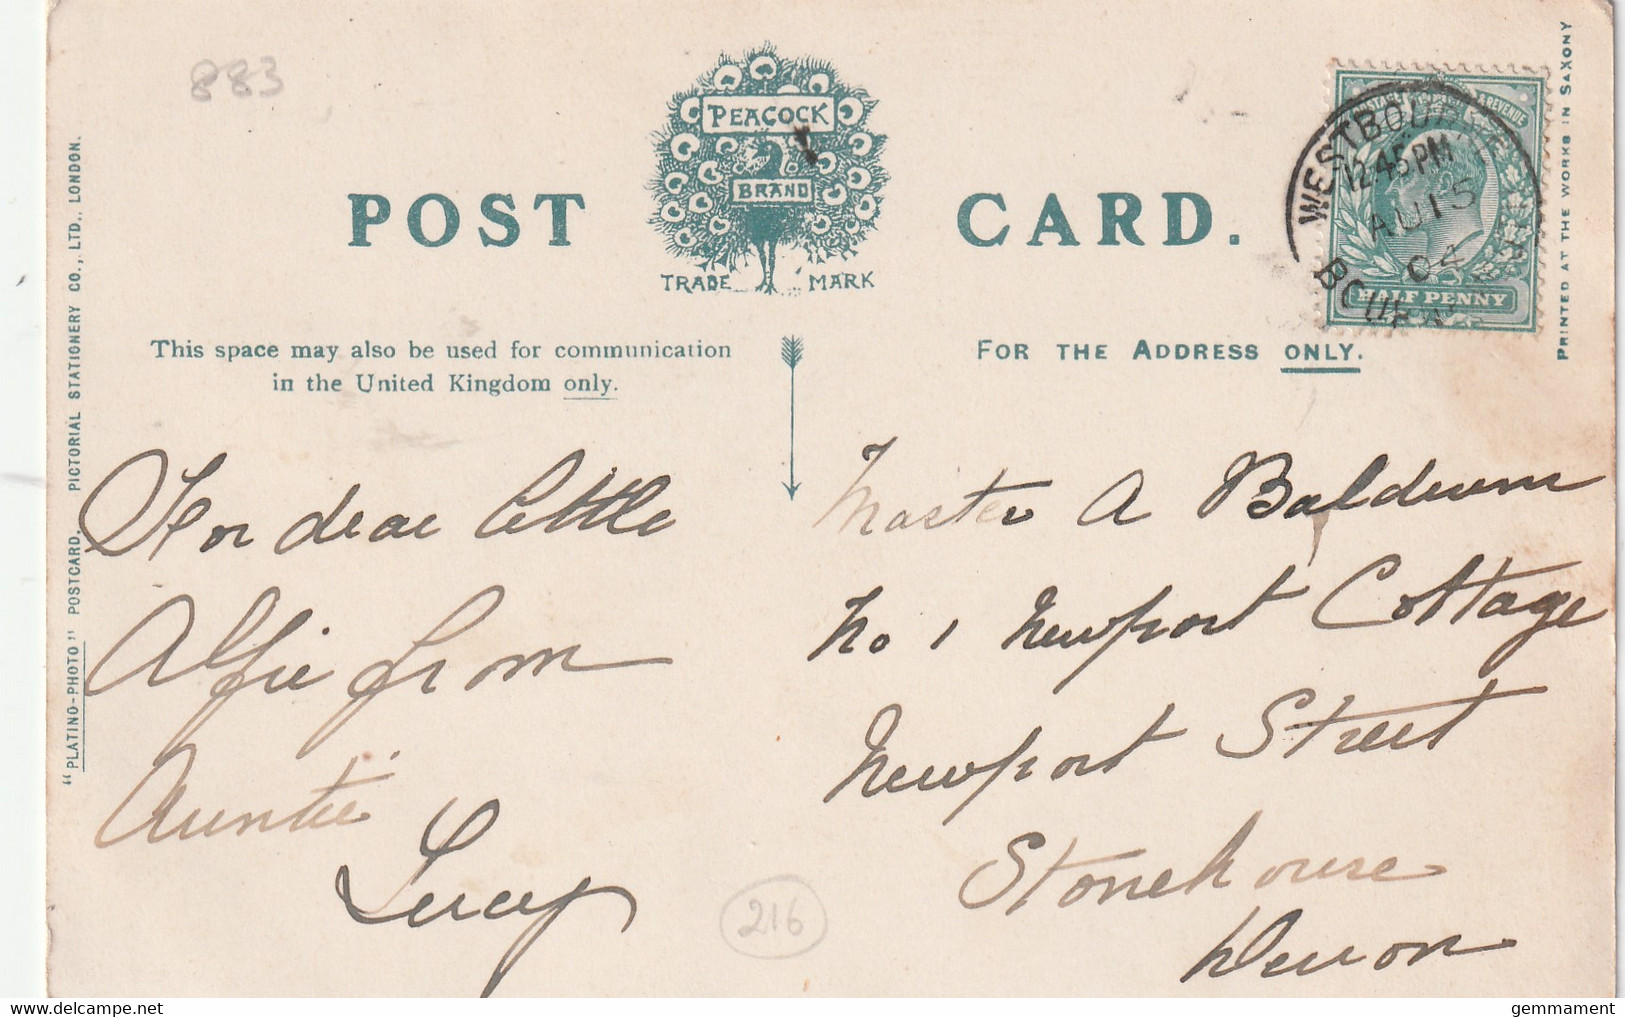 883
PEACOCK
BRAND
TRADE MARK
POST CARD.
This space may also be used for communication
in the United Kingdom only.
FOR THE ADDRESS ONLY.
"PLATINO-PHOTO" POSTCARD. PICTORIAL STATIONERY CO., LTD., LONDON.
PRINTED AT THE WORKS IN SAXONY
POSTAGE & REVENUE
HALF PENNY
12.45PM
AU 15
04
For dear little
Alfie from
Auntie
Lucy
Master A Baldwin
No 1 Newport Cottage
Newport Street
Stonehouse
Devon
216
delcampe.net
gemmament